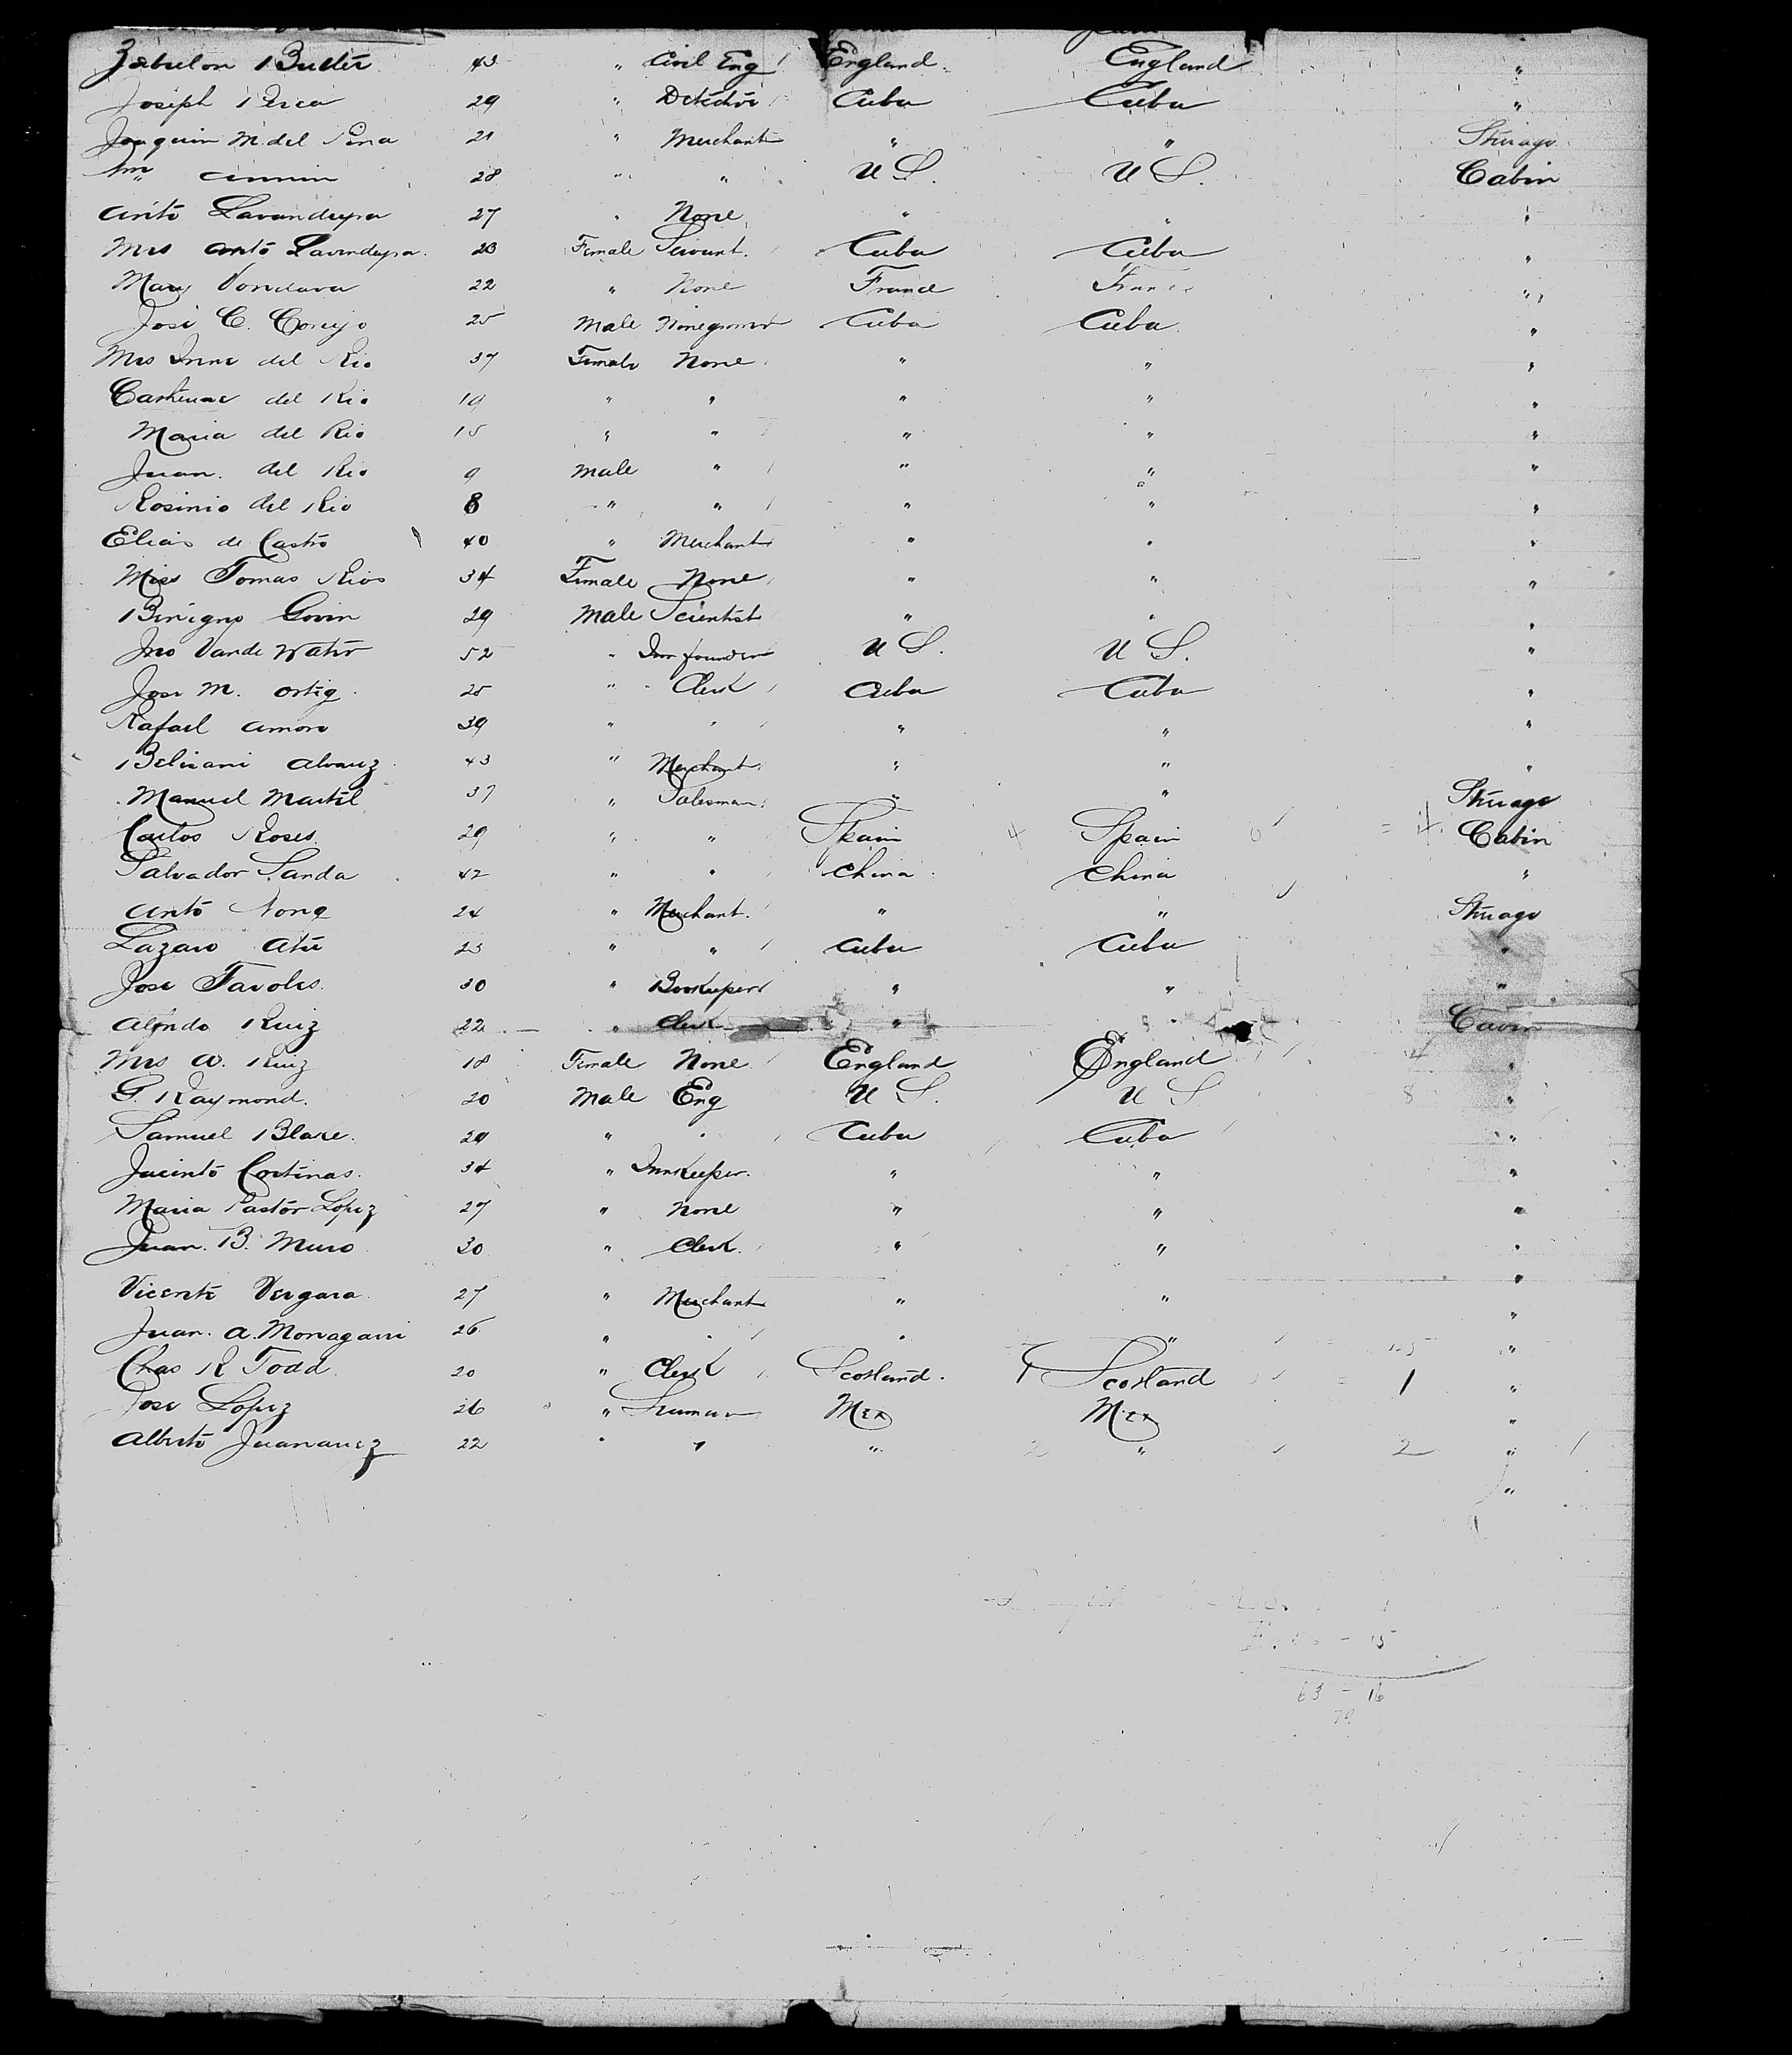 Zebulon Butler 43 " Civil Eng England England "
Joseph 29 " Detective Cuba Cuba "
Joaquin M. del Pena 21 " Merchant " " Steerage
28 " " U S. U S. Cabin
Anto 27 " None " " "
Mrs Anto 23 Female Servant. Cuba Cuba "
Mary 22 " None France France "
José C. Cornejo 25 Male Cuba Cuba "
Mrs del Rio 37 Female None " " "
del Rio 19 " " " " "
Maria del Rio 15 " " " " "
Juan. del Rio 9 Male " " " "
Rosinio del Rio 8 " " " " "
Elias de Castro 40 " Merchant " " "
Miss Tomas Rios 34 Female None " " "
Benigno Govin 29 Male Scientist " " "
Jno Vande Water 52 " U S. U S. "
Jose M. Ortiz 25 " Clerk Cuba Cuba "
Rafael Amoro 39 " " " " "
Alvarez 43 " Merchant " " "
Manuel Martil 37 " Salesman " " Steerage
Carlos Roses. 29 " " Spain 4 Spain Cabin
Salvador Sanda 42 " " China China "
Anto Nong 24 " Merchant. " " Steerage
Lazaro 23 " " Cuba Cuba "
Jose 30 " Bookeeper " " "
Alfredo Ruiz 22 " Clerk " " Cabin
Mrs A. Ruiz 18 Female None England England "
G. Raymond. 20 Male Eng U S. U S 8 "
Samuel Blake. 29 " " Cuba Cuba "
Jacinto Cortinas. 34 " Innkeeper. " " "
Maria Pastor Lopez 27 " None " " "
Juan. B. Muro 30 " Clerk. " " "
Vicente Vergara 27 " Merchant " " "
Juan. A. 26 " " " " "
Chas R Todd 20 " Clerk Scotland. 1 Scotland 1 "
Jose Lopez 26 " Mex Mex "
Alberto 22 " " " 2 " 2 "
"
15
63 - 16
79